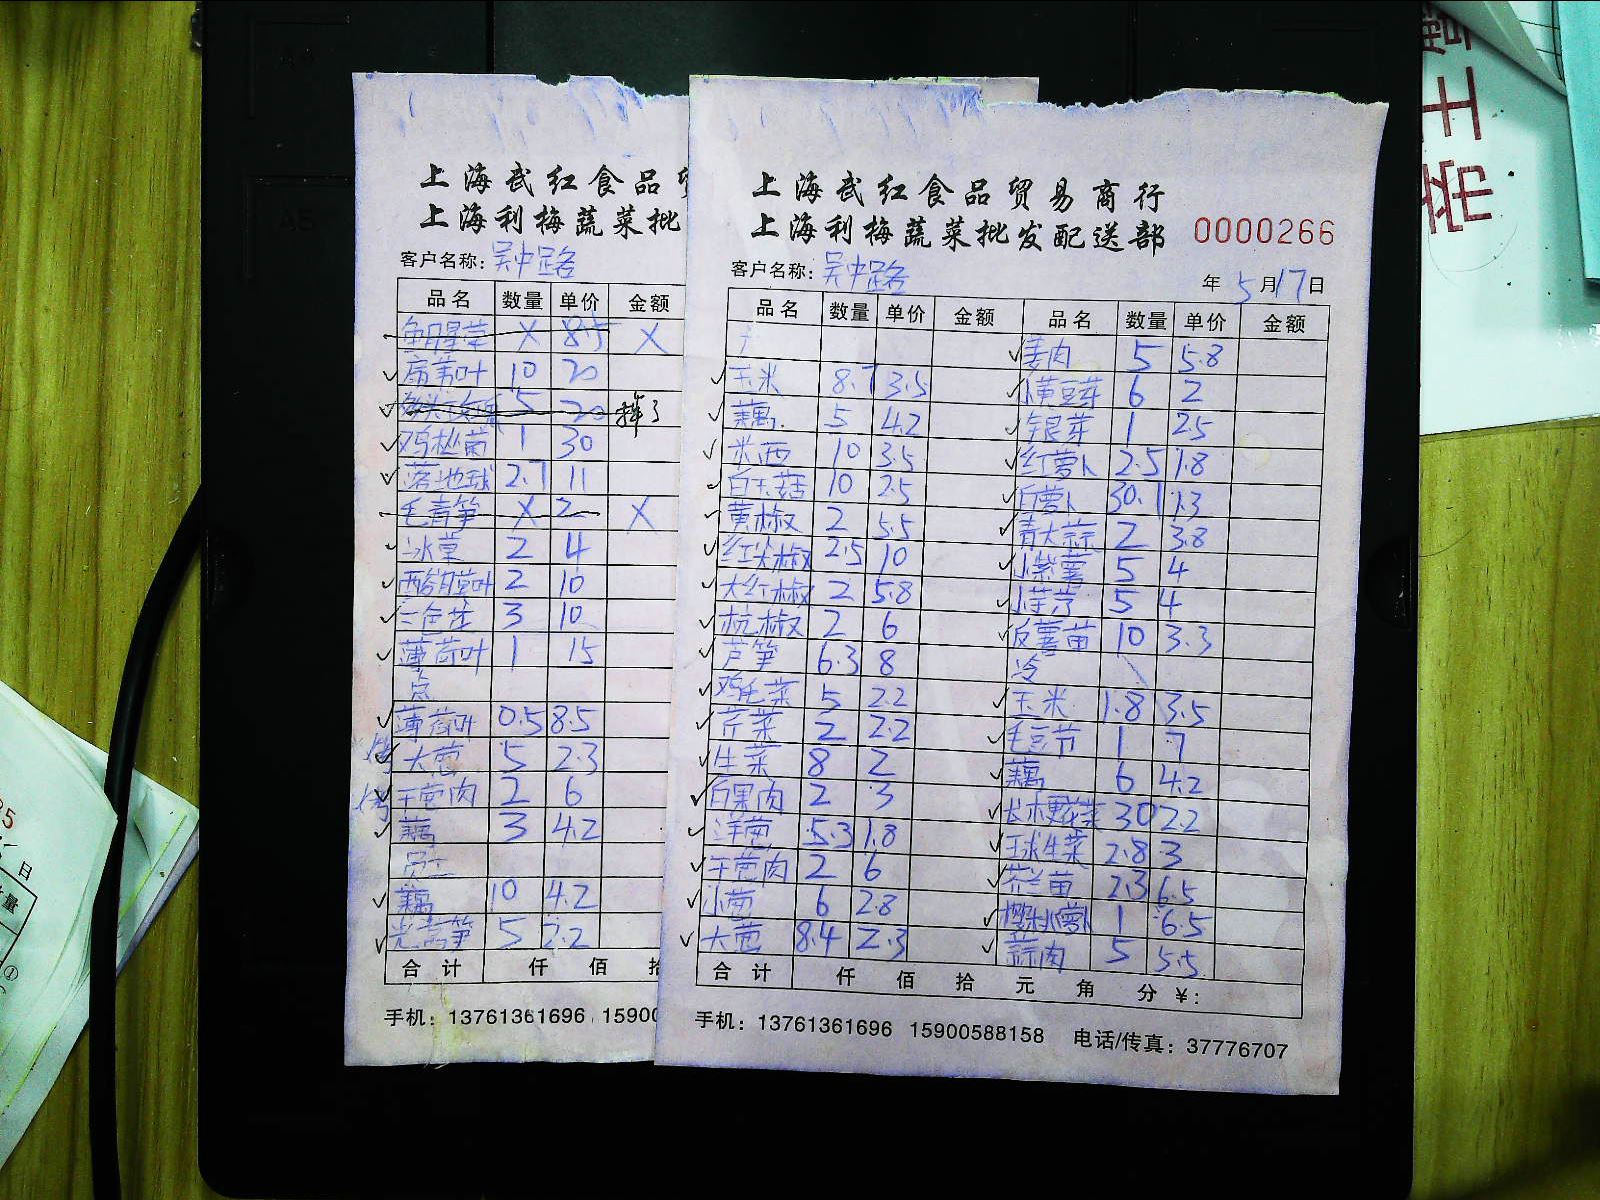 上海武红食品贸
上海利梅蔬菜批
客户名称: 吴中路
品名 数量 单价 金额
鱼腥草 X 8.5 X
10 20
5 20 择了
鸡枞菌 1 30
落地球 2.7 11
毛青笋 X 2 X
冰草 2 4
2 10
三色芝 3 10
薄荷叶 1 15
点
薄荷叶 0.5 85
大葱 5 2.3
干葱肉 2 6
藕 3 4.2
员工
藕 10 4.2
光莴笋 5 2.2
合计 仟 佰 拾
手机: 13761361696 15900
上海武红食品贸易商行
上海利梅蔬菜批发配送部 0000266
客户名称: 吴中路 年 5月17日
品名 数量 单价 金额 品名 数量 单价 金额
姜肉 5 5.8
玉米 8.7 3.5 小黄豆芽 6 2
藕 5 4.2 银芽 1 25
米西 10 3.5 红萝卜 2.5 1.8
白玉菇 10 2.5 白萝卜 30.1 1.3
黄椒 2 5.5 青大蒜 2 3.8
红尖椒 2.5 10 小紫薯 5 4
大红椒 2 5.8 小芋艿 5 4
杭椒 2 6 反薯苗 10 3.3
芦笋 6.3 8 冷
鸡毛菜 5 2.2 玉米 1.8 3.5
芹菜 2 2.2 毛豆节 1 7
生菜 8 2 藕 6 4.2
白果肉 2 3 长梗花菜 30 2.2
洋葱 5.3 1.8 球生菜 2.8 3
干葱肉 2 6 芥兰苗 2.3 6.5
小葱 6 2.8 樱桃小萝卜 1 6.5
大葱 8.4 2.3 蒜肉 5 5.5
合计 仟 佰 拾 元 角 分 ¥:
手机: 13761361696 15900588158 电话/传真: 37776707